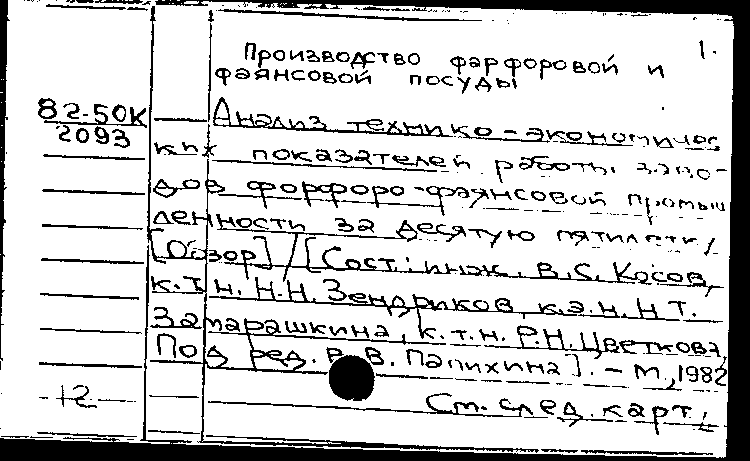 1.
Производство фарфоровой и
фаянсовой посуды
82-50К
2093
Анализ технико-экономичес
ких показателей работы заво-
дов фарфоро-фаянсовой промыш
ленности за десятую пятилетку
[Обзор] / [Сост.: инж. В.С. Косов,
к.т.н. Н.Н. Зендриков, к.э.н. Н Т.
Замарашкина, к.т.н. Р.Н. Цветкова,
Под ред. В. Папихина]. - М, 1982
12
См. след. карт.